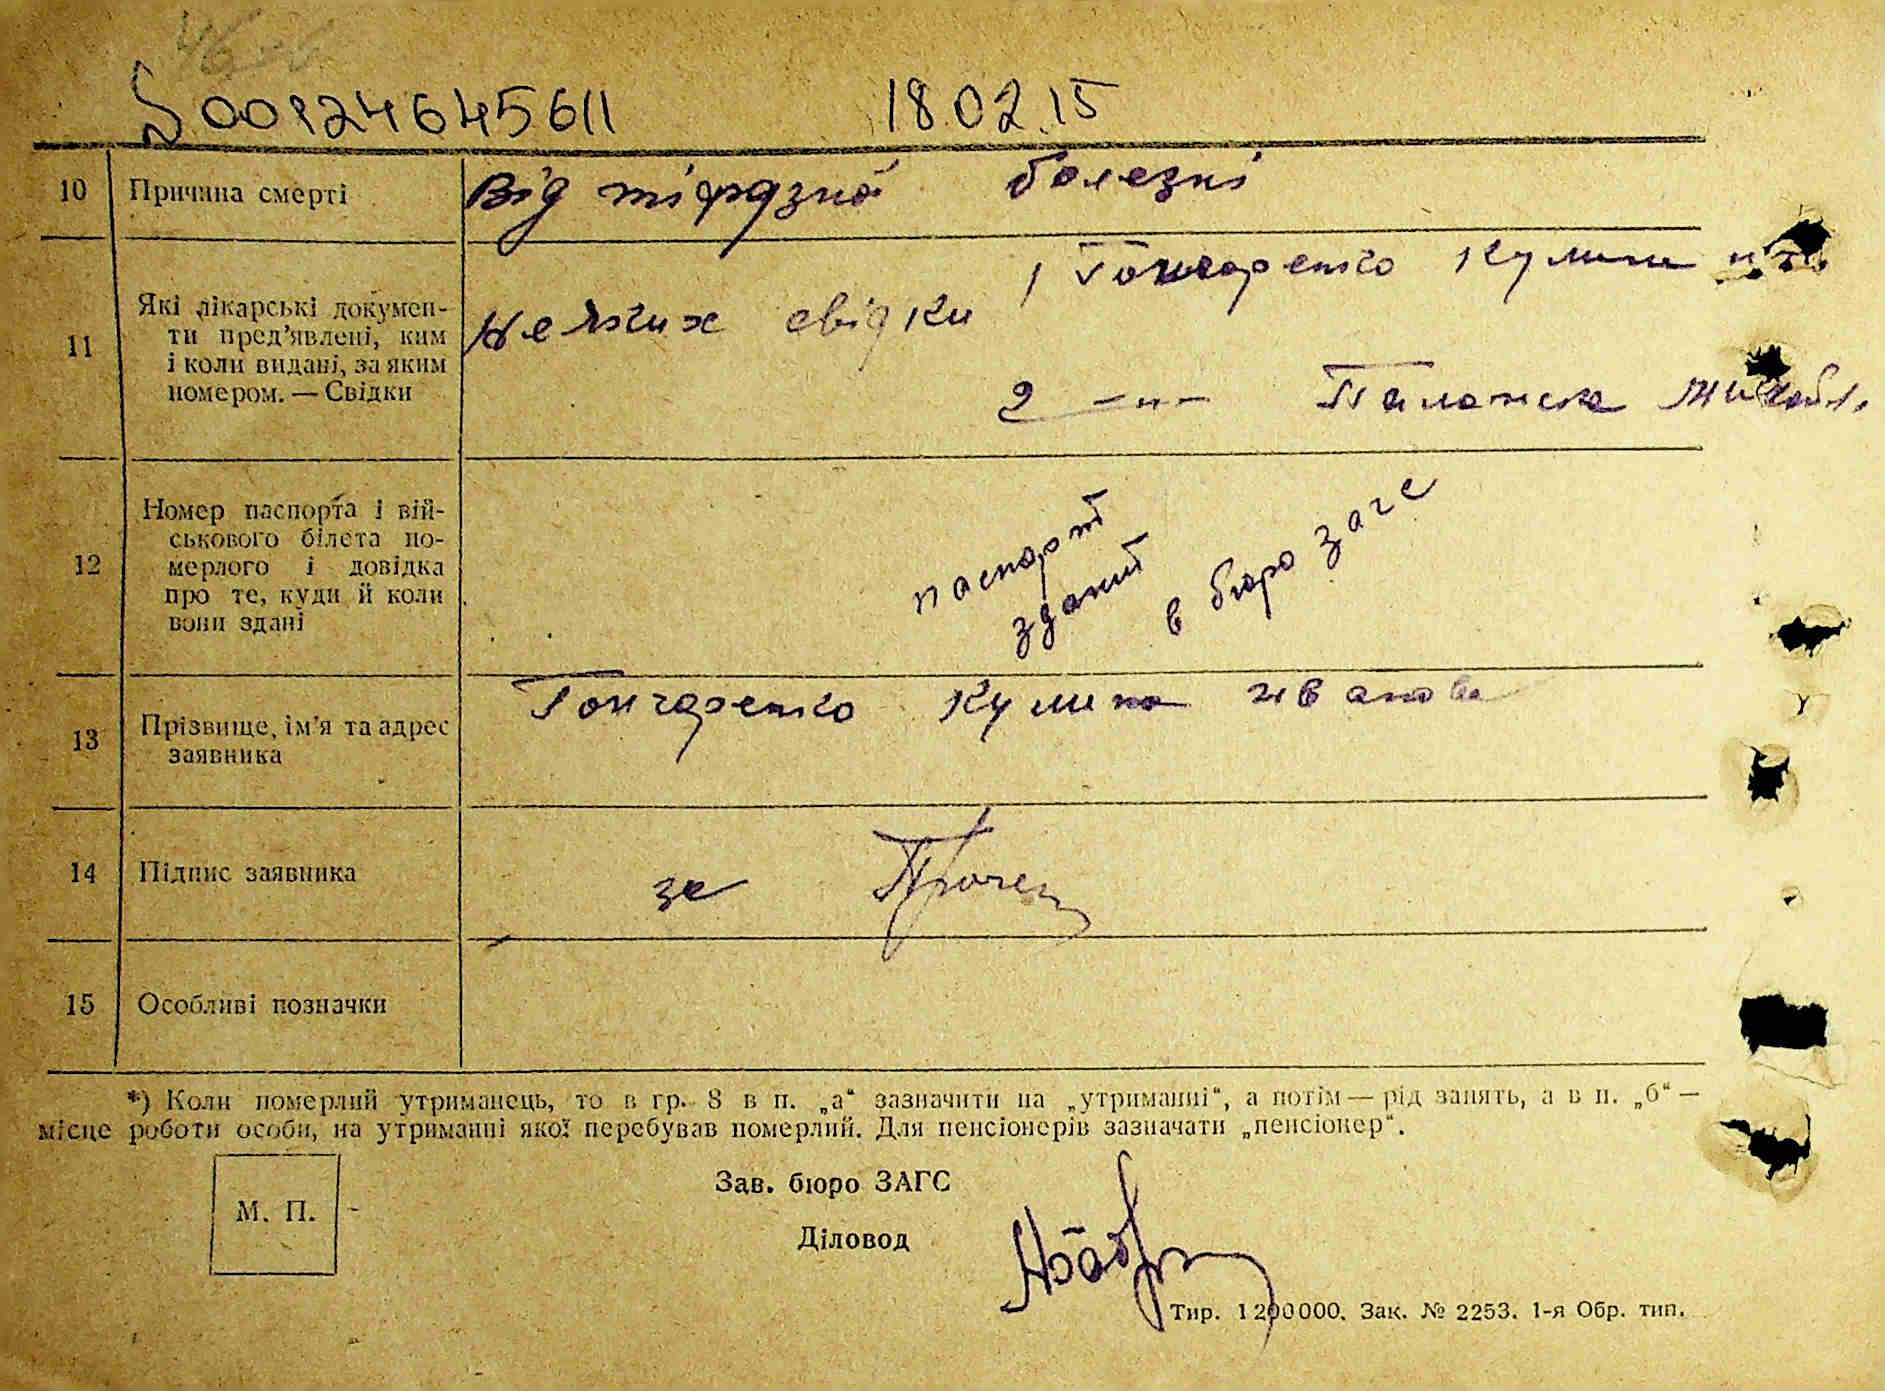 00124645611 18.02.15
10 Причина смерті Від тіфозної болезні
11 Які лікарські докумен-
ти пред’явлені, ким
і коли видані, за яким
номером. — Свідки
свідки 1 Гончаренко Кулина
2 —"—
12 Номер паспорта і вій-
ськового білета по-
мерлого і довідка
про те, куди й коли
вони здані
паспорт
зданий
в бюро загс
13 Прізвище, ім’я та адрес
заявника
Гончаренко Кулина
14 Підпис заявника за
15 Особливі позначки
*) Коли померлий утриманець, то в гр. 8 в п. „а“ зазначити на „утриманні“, а потім — рід занять, а в п. „б“ —
місце роботи особи, на утриманні якої перебував померлий. Для пенсіонерів зазначати „пенсіонер“.
М. П.
Зав. бюро ЗАГС
Діловод
Тир. 1200000. Зак. № 2253. 1-я Обр. тип.